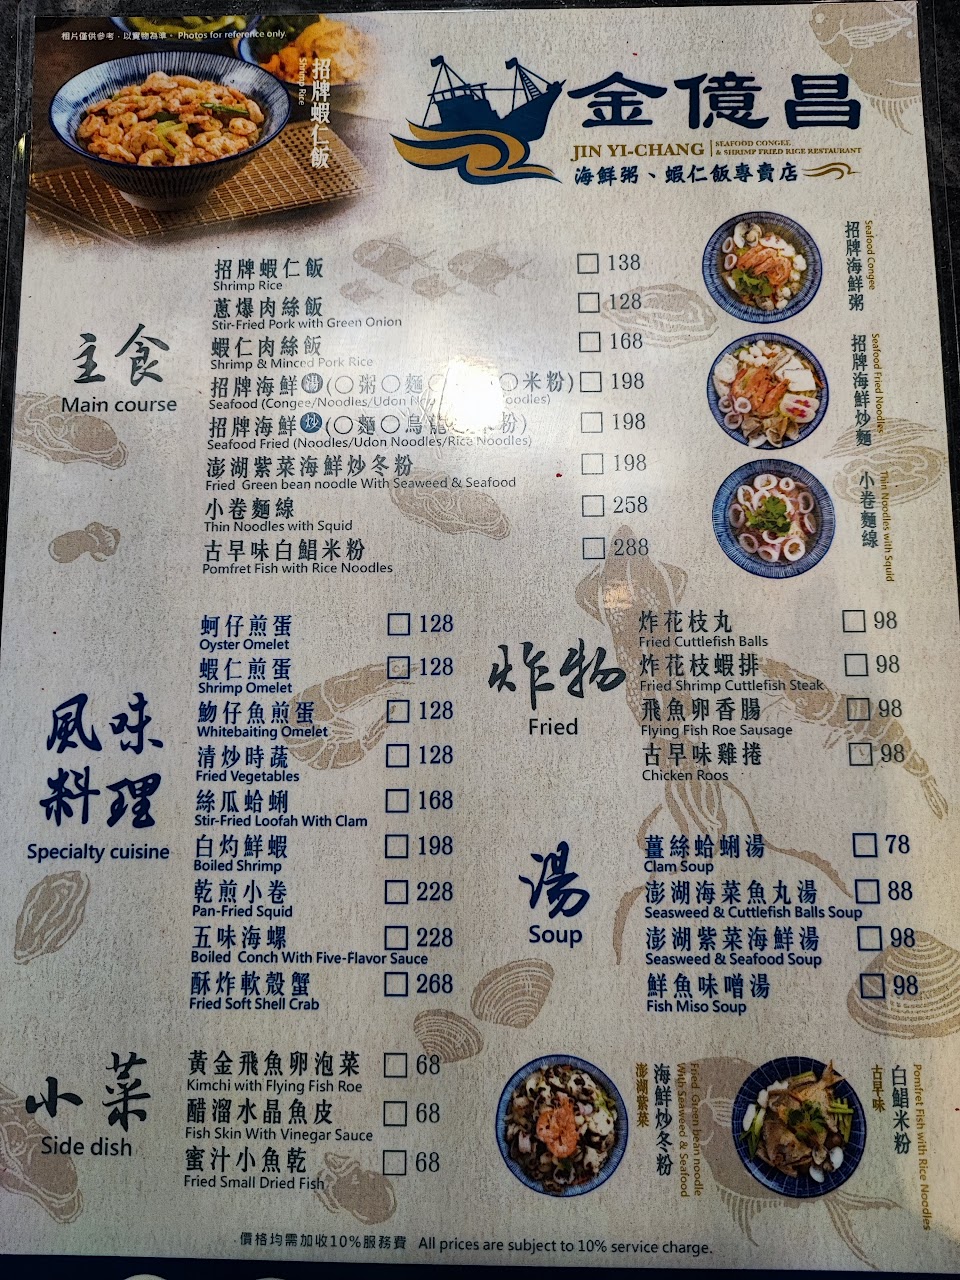 相片僅供參考，以實物為準。 Photos for reference only.
招牌蝦仁飯
Shrimp Rice
金億昌
JIN YI-CHANG
SEAFOOD CONGEE
& SHRIMP FRIED RICE RESTAURANT
海鮮粥、蝦仁飯專賣店
主食
Main course
招牌蝦仁飯 138
Shrimp Rice
蔥爆肉絲飯 128
Stir-Fried Pork with Green Onion
蝦仁肉絲飯 168
Shrimp & Minced Pork Rice
招牌海鮮湯(○粥○麵○ ○米粉) 198
Seafood (Congee/Noodles/Udon oodles)
招牌海鮮炒(○麵○烏龍 粉) 198
Seafood Fried (Noodles/Udon Noodles/Rice Noodles)
澎湖紫菜海鮮炒冬粉 198
Fried Green bean noodle With Seaweed & Seafood
小卷麵線 258
Thin Noodles with Squid
古早味白鯧米粉 288
Pomfret Fish with Rice Noodles
招牌海鮮粥
Seafood Congee
招牌海鮮炒麵
Seafood Fried Noodles
小卷麵線
Thin Noodles with Squid
風味
料理
Specialty cuisine
蚵仔煎蛋 128
Oyster Omelet
蝦仁煎蛋 128
Shrimp Omelet
魩仔魚煎蛋 128
Whitebaiting Omelet
清炒時蔬 128
Fried Vegetables
絲瓜蛤蜊 168
Stir-Fried Loofah With Clam
白灼鮮蝦 198
Boiled Shrimp
乾煎小卷 228
Pan-Fried Squid
五味海螺 228
Boiled Conch With Five-Flavor Sauce
酥炸軟殼蟹 268
Fried Soft Shell Crab
炸物
Fried
炸花枝丸 98
Fried Cuttlefish Balls
炸花枝蝦排 98
Fried Shrimp Cuttlefish Steak
飛魚卵香腸 98
Flying Fish Roe Sausage
古早味雞捲 98
Chicken Roos
湯
Soup
薑絲蛤蜊湯 78
Clam Soup
澎湖海菜魚丸湯 88
Seasweed & Cuttlefish Balls Soup
澎湖紫菜海鮮湯 98
Seasweed & Seafood Soup
鮮魚味噌湯 98
Fish Miso Soup
小菜
Side dish
黃金飛魚卵泡菜 68
Kimchi with Flying Fish Roe
醋溜水晶魚皮 68
Fish Skin With Vinegar Sauce
蜜汁小魚乾 68
Fried Small Dried Fish
澎湖紫菜
海鮮炒冬粉
Fried Green bean noodle
With Seaweed & Seafood
古早味
白鯧米粉
Pomfret Fish with Rice Noodles
價格均需加收10%服務費 All prices are subject to 10% service charge.